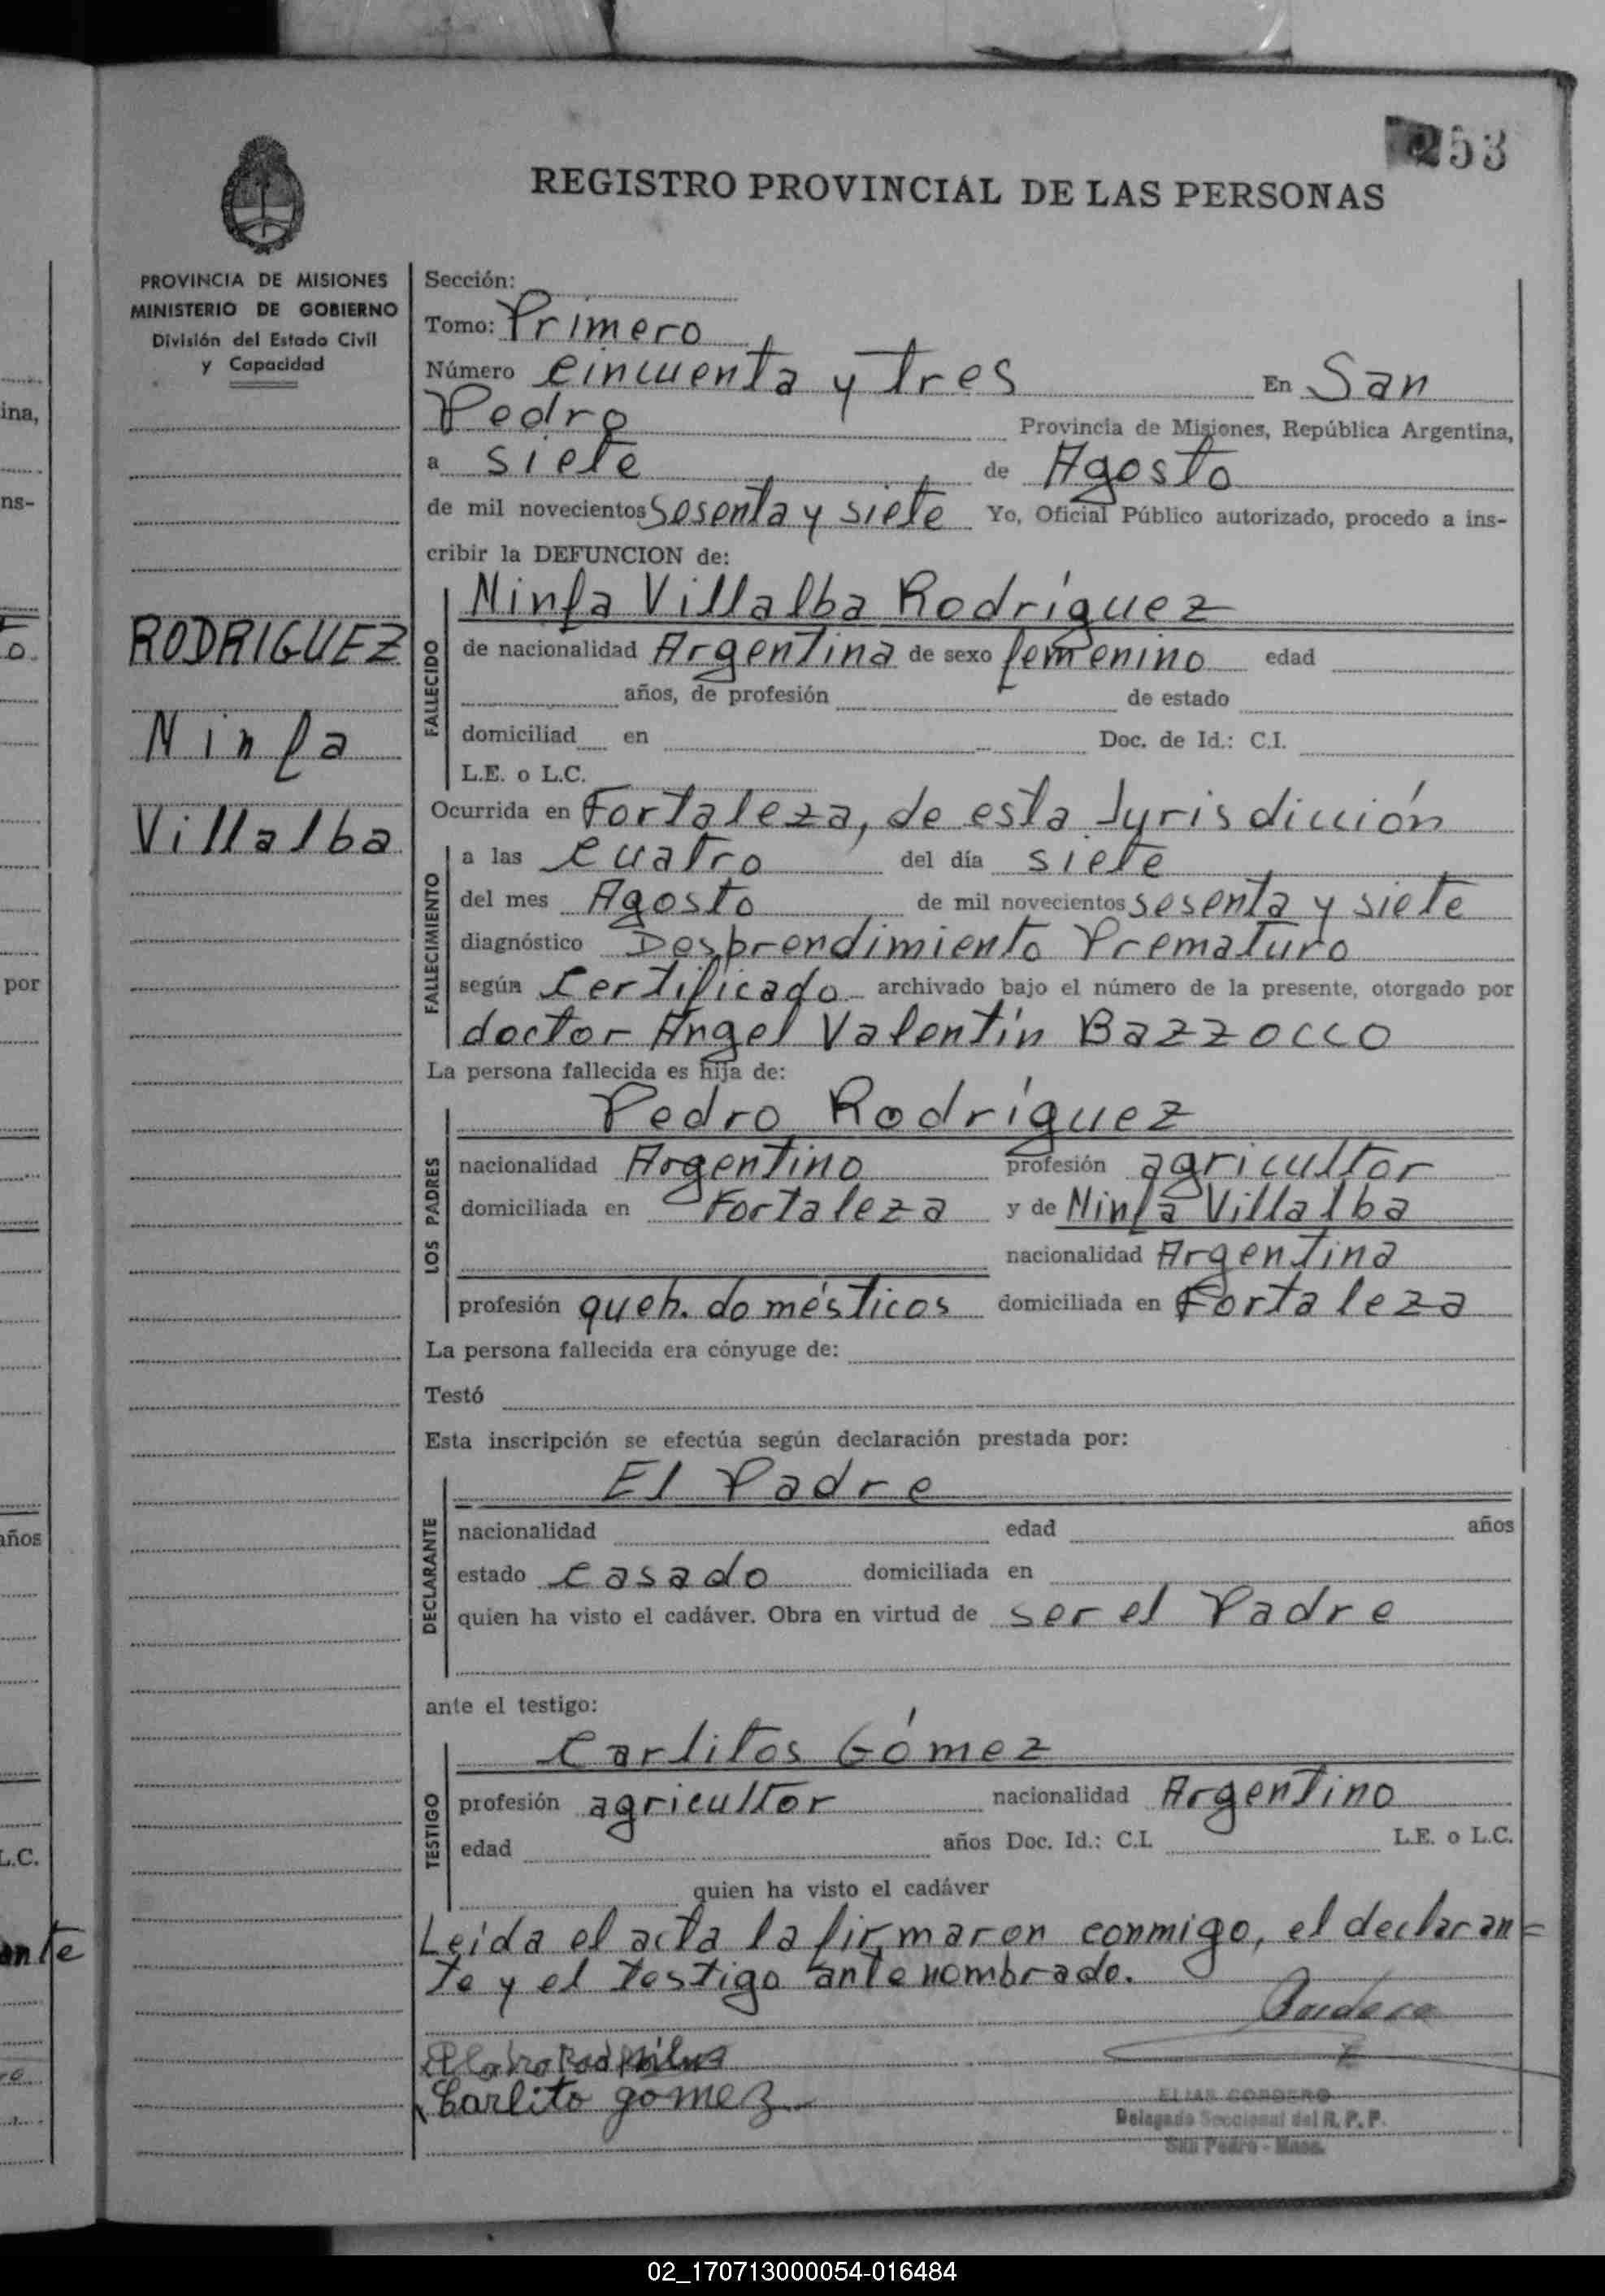 253
REGISTRO PROVINCIAL DE LAS PERSONAS
PROVINCIA DE MISIONES
MINISTERIO DE GOBIERNO
División del Estado Civil
y Capacidad
RODRIGUEZ
Ninfa
Villalba
Sección:
Tomo: Primero
Número cincuenta y tres En San
Pedro Provincia de Misiones, República Argentina,
a siete de Agosto
de mil novecientos sesenta y siete Yo, Oficial Público autorizado, procedo a ins-
cribir la DEFUNCION de:
FALLECIDO
Ninfa Villalba Rodríguez
de nacionalidad Argentina de sexo femenino edad
años, de profesión de estado
domiciliad en Doc. de Id.: C.I.
L.E. o L.C.
Ocurrida en Fortaleza, de esta Jurisdicción
FALLECIMIENTO
a las cuatro del día siete
del mes Agosto de mil novecientos sesenta y siete
diagnóstico Desprendimiento Prematuro
según certificado archivado bajo el número de la presente, otorgado por
doctor Angel Valentín Bazzocco
La persona fallecida es hija de:
LOS PADRES
Pedro Rodríguez
nacionalidad Argentino profesión agricultor
domiciliada en Fortaleza y de Ninfa Villalba
nacionalidad Argentina
profesión queh. domésticos domiciliada en Fortaleza
La persona fallecida era cónyuge de:
Testó
Esta inscripción se efectúa según declaración prestada por:
DECLARANTE
El Padre
nacionalidad edad años
estado casado domiciliada en
quien ha visto el cadáver. Obra en virtud de ser el Padre
ante el testigo:
TESTIGO
Carlitos Gómez
profesión agricultor nacionalidad Argentino
edad años Doc. Id.: C.I. L.E. o L.C.
quien ha visto el cadáver
Leída el acta la firmaron conmigo, el declaran=
te y el testigo antenombrado.
Carlito gomez
ELIAS CORDERO
Delegado Seccional del R. P. P.
San Pedro - Mnes.
ina,
ns-
o.
por
años
L.C.
ante
02_170713000054-016484